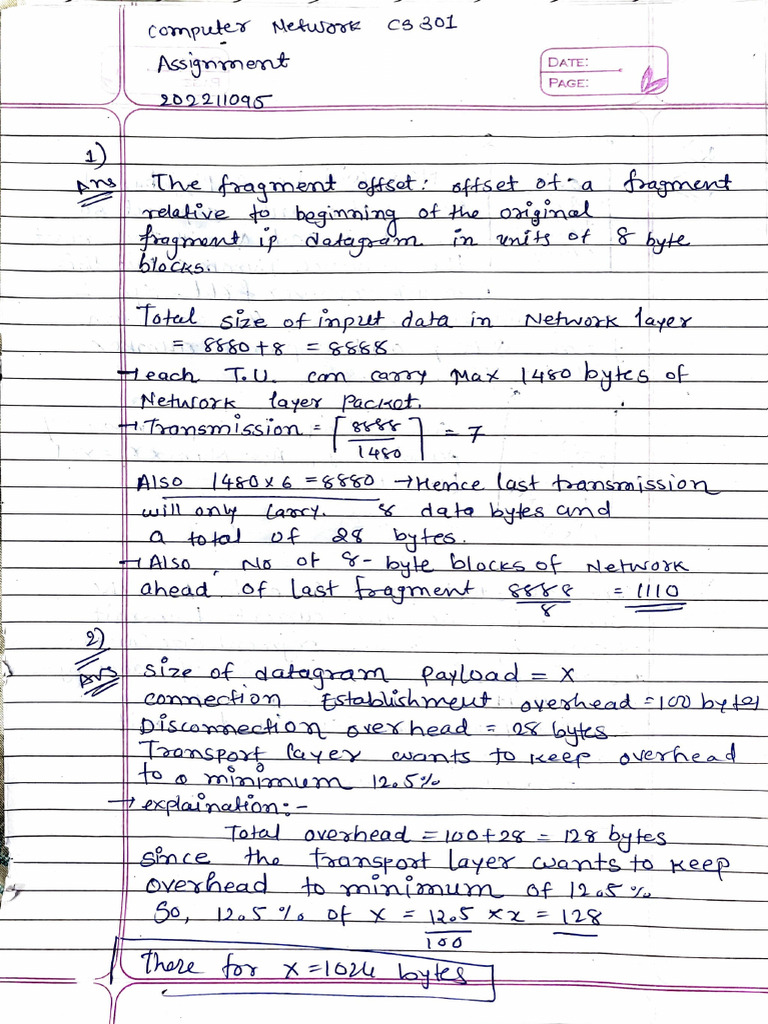 Computer Network CS301
Assignment
202211095
DATE:
PAGE:
1)
Ans The fragment offset: offset of a fragment
relative to beginning of the original
fragment ip datagram in units of 8 byte
blocks.
Total size of input data in Network layer
= 8880+8 = 8888
→ each T.U. can carry Max 1480 bytes of
Network layer Packet.
→ Transmission = ⌈8888/1480⌉ = 7
Also 1480×6=8880 → Hence last transmission
will only carry. 8 data bytes and
a total of 28 bytes.
→ Also, No of 8-byte blocks of Network
ahead of last fragment 8888/8 = 1110
2)
Ans size of datagram Payload = x
connection Establishment overhead =100 bytes
Disconnection overhead = 28 bytes
Transport layer wants to keep overhead
to a minimum 12.5%
→ explaination:-
Total overhead =100+28 = 128 bytes
since the transport layer wants to keep
overhead to minimum of 12.5%
So, 12.5% of x = 12.5/100 × x = 128
There for x=1024 bytes